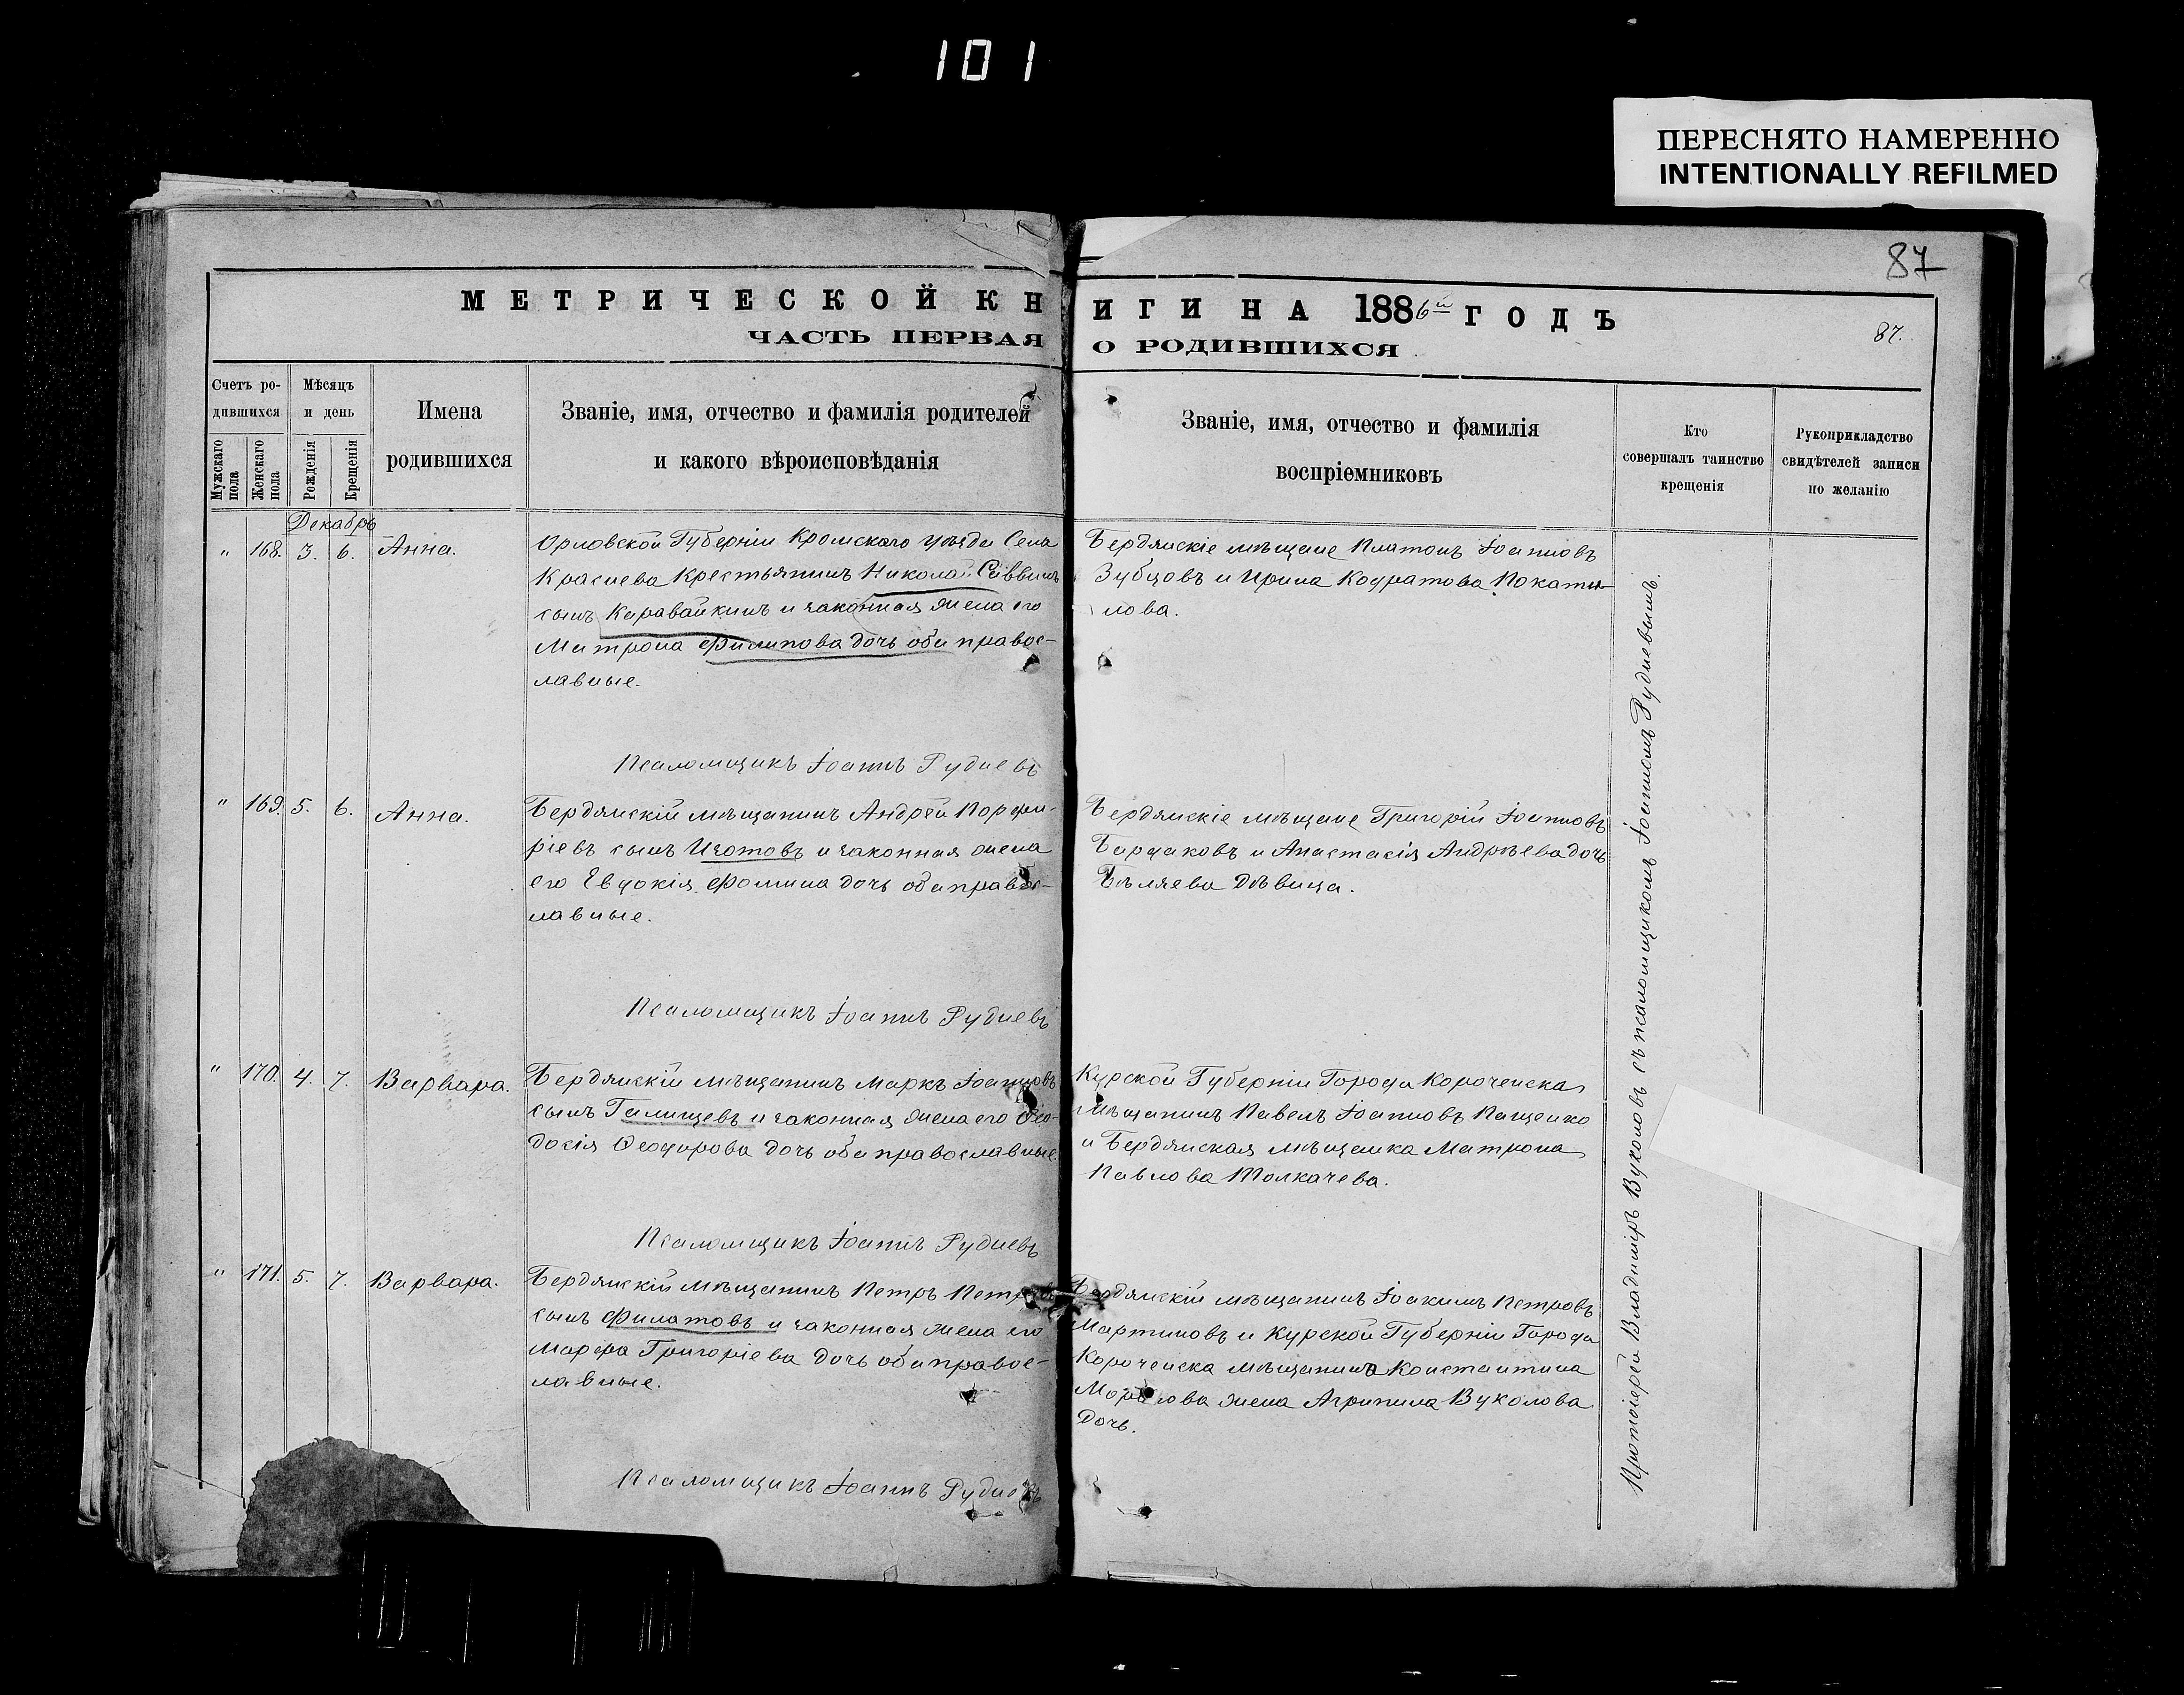 101
ПЕРЕСНЯТО НАМЕРЕННО
INTENTIONALLY REFILMED
87
МЕТРИЧЕСКОЙ КНИГИ НА 1886й ГОДЪ
ЧАСТЬ ПЕРВАЯ О РОДИВШИХСЯ
87.
Счетъ ро-
дившихся
Мужскаго пола
Женскаго пола
Мѣсяцъ
и день
Рожденія
Крещенія
Имена
родившихся
Званіе, имя, отчество и фамилія родителей
и какого вѣроисповѣданія
Званіе, имя, отчество и фамилія
воспріемниковъ
Кто
совершалъ таинство
крещенія
Рукоприкладство
свидѣтелей записи
по желанію
Декабрь
" 168. 3. 6. Анна.
Орловской Губерніи Кромскаго уѣзда Села
Краснева Крестьянинъ Николай Саввинъ
сынъ Каравайкинъ и законная жена его
Матрона Филипова дочь оба правос-
лавные.
Псаломщикъ Іоаннъ Рудневъ
Бердянскіе мѣщане Платонъ Іоанновъ
Зубцовъ и Ирина Кодратова Покати-
лова.
" 169. 5. 6. Анна.
Бердянскій мѣщанинъ Андрей Порфи-
ріевъ сынъ Изотовъ и законная жена
его Евдокія Фомина дочь оба правос-
лавные.
Псаломщикъ Іоаннъ Рудневъ
Бердянскіе мѣщане Григорій Іоанновъ
Бардаковъ и Анастасія Андрѣева дочь
Бѣляева дѣвица.
" 170. 4. 7. Варвара.
Бердянскій мѣщанинъ Маркъ Іоанновъ
сынъ Галищевъ и законная жена его Ѳео-
досія Ѳеодорова дочь оба православные.
Псаломщикъ Іоаннъ Рудневъ
Курской Губерніи Города Короченска
мѣщанинъ Павелъ Іоанновъ Пащенко
и Бердянская мѣщанка Матрона
Павлова Толкачева.
" 171. 5. 7. Варвара.
Бердянскій мѣщанинъ Петръ Петровъ
сынъ Филатовъ и законная жена его
Марфа Григоріева дочь оба правос-
лавные.
Псаломщикъ Іоаннъ Рудневъ
Бердянскій мѣщанинъ Іоакимъ Петровъ
Мартиновъ и Курской Губерніи Города
Короченска мѣщанина Константина
жена Агрипина Вуколова
дочь.
Протоіерей Владиміръ Вуколовъ съ псаломщикомъ Іоанномъ Рудневымъ.